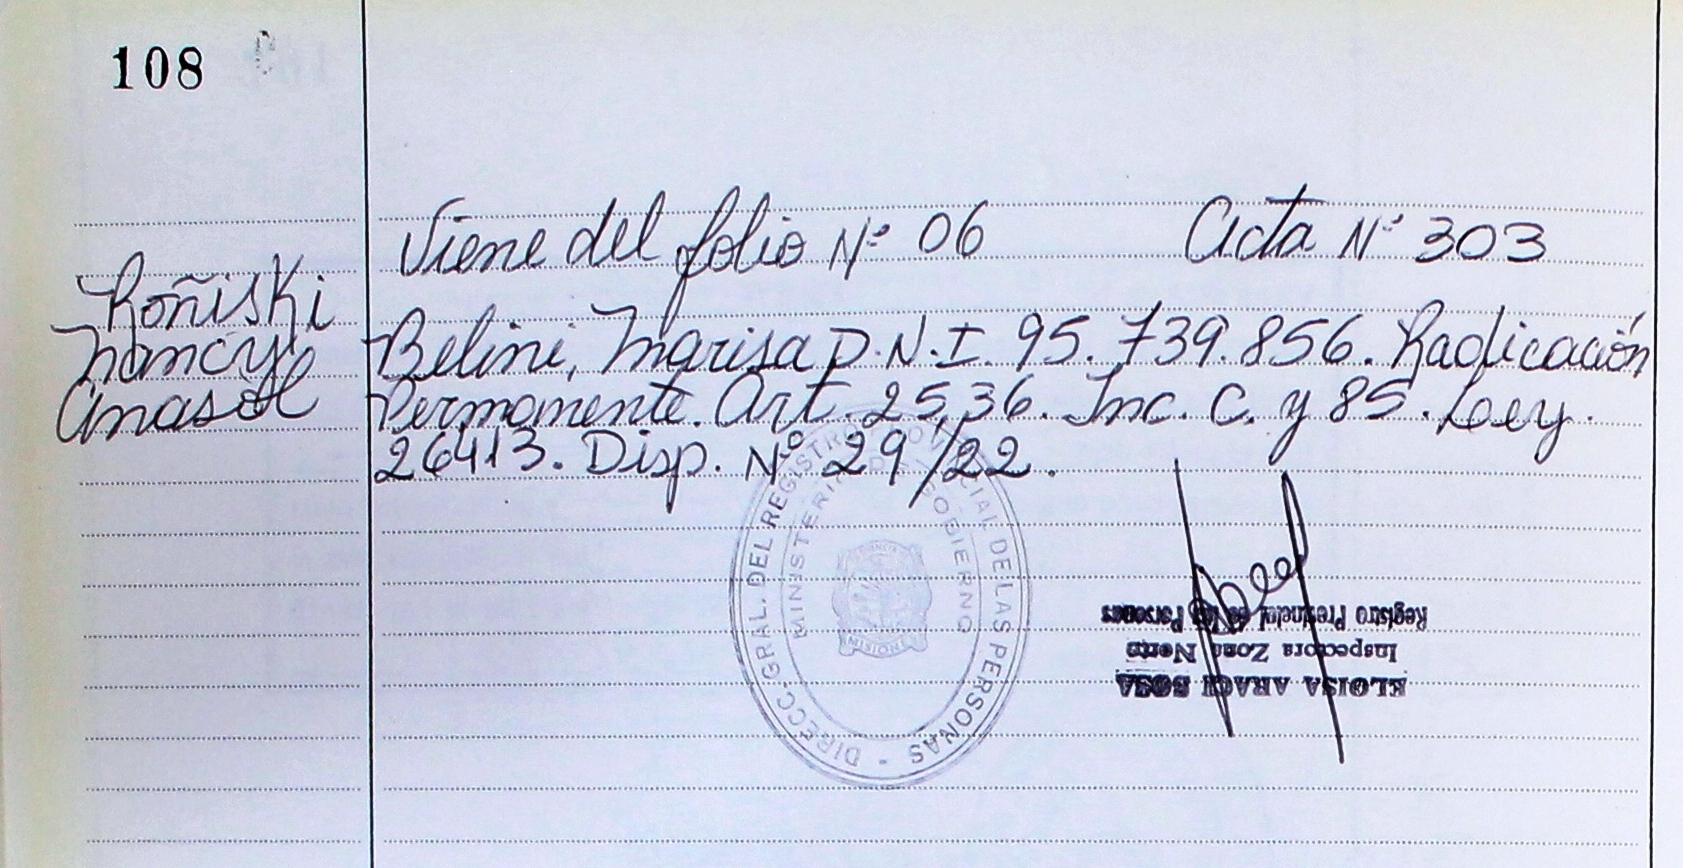 108
Viene del folio Nº 06 Acta Nº 303
Roñiski
Nancy
Anasol
Belini, Marisa D.N.I. 95.739.856. Radicación
Permanente. Art. 25,36. Inc. C. y 85. Ley.
26413. Disp. Nº 29/22.
DIRECC. GRAL. DEL REGISTRO PROVINCIAL DE LAS PERSONAS -
MINISTERIO DE GOBIERNO
MISIONES
ELOISA ARACI SOSA
Inspectora Zona Norte
Registro Provincial de las Personas